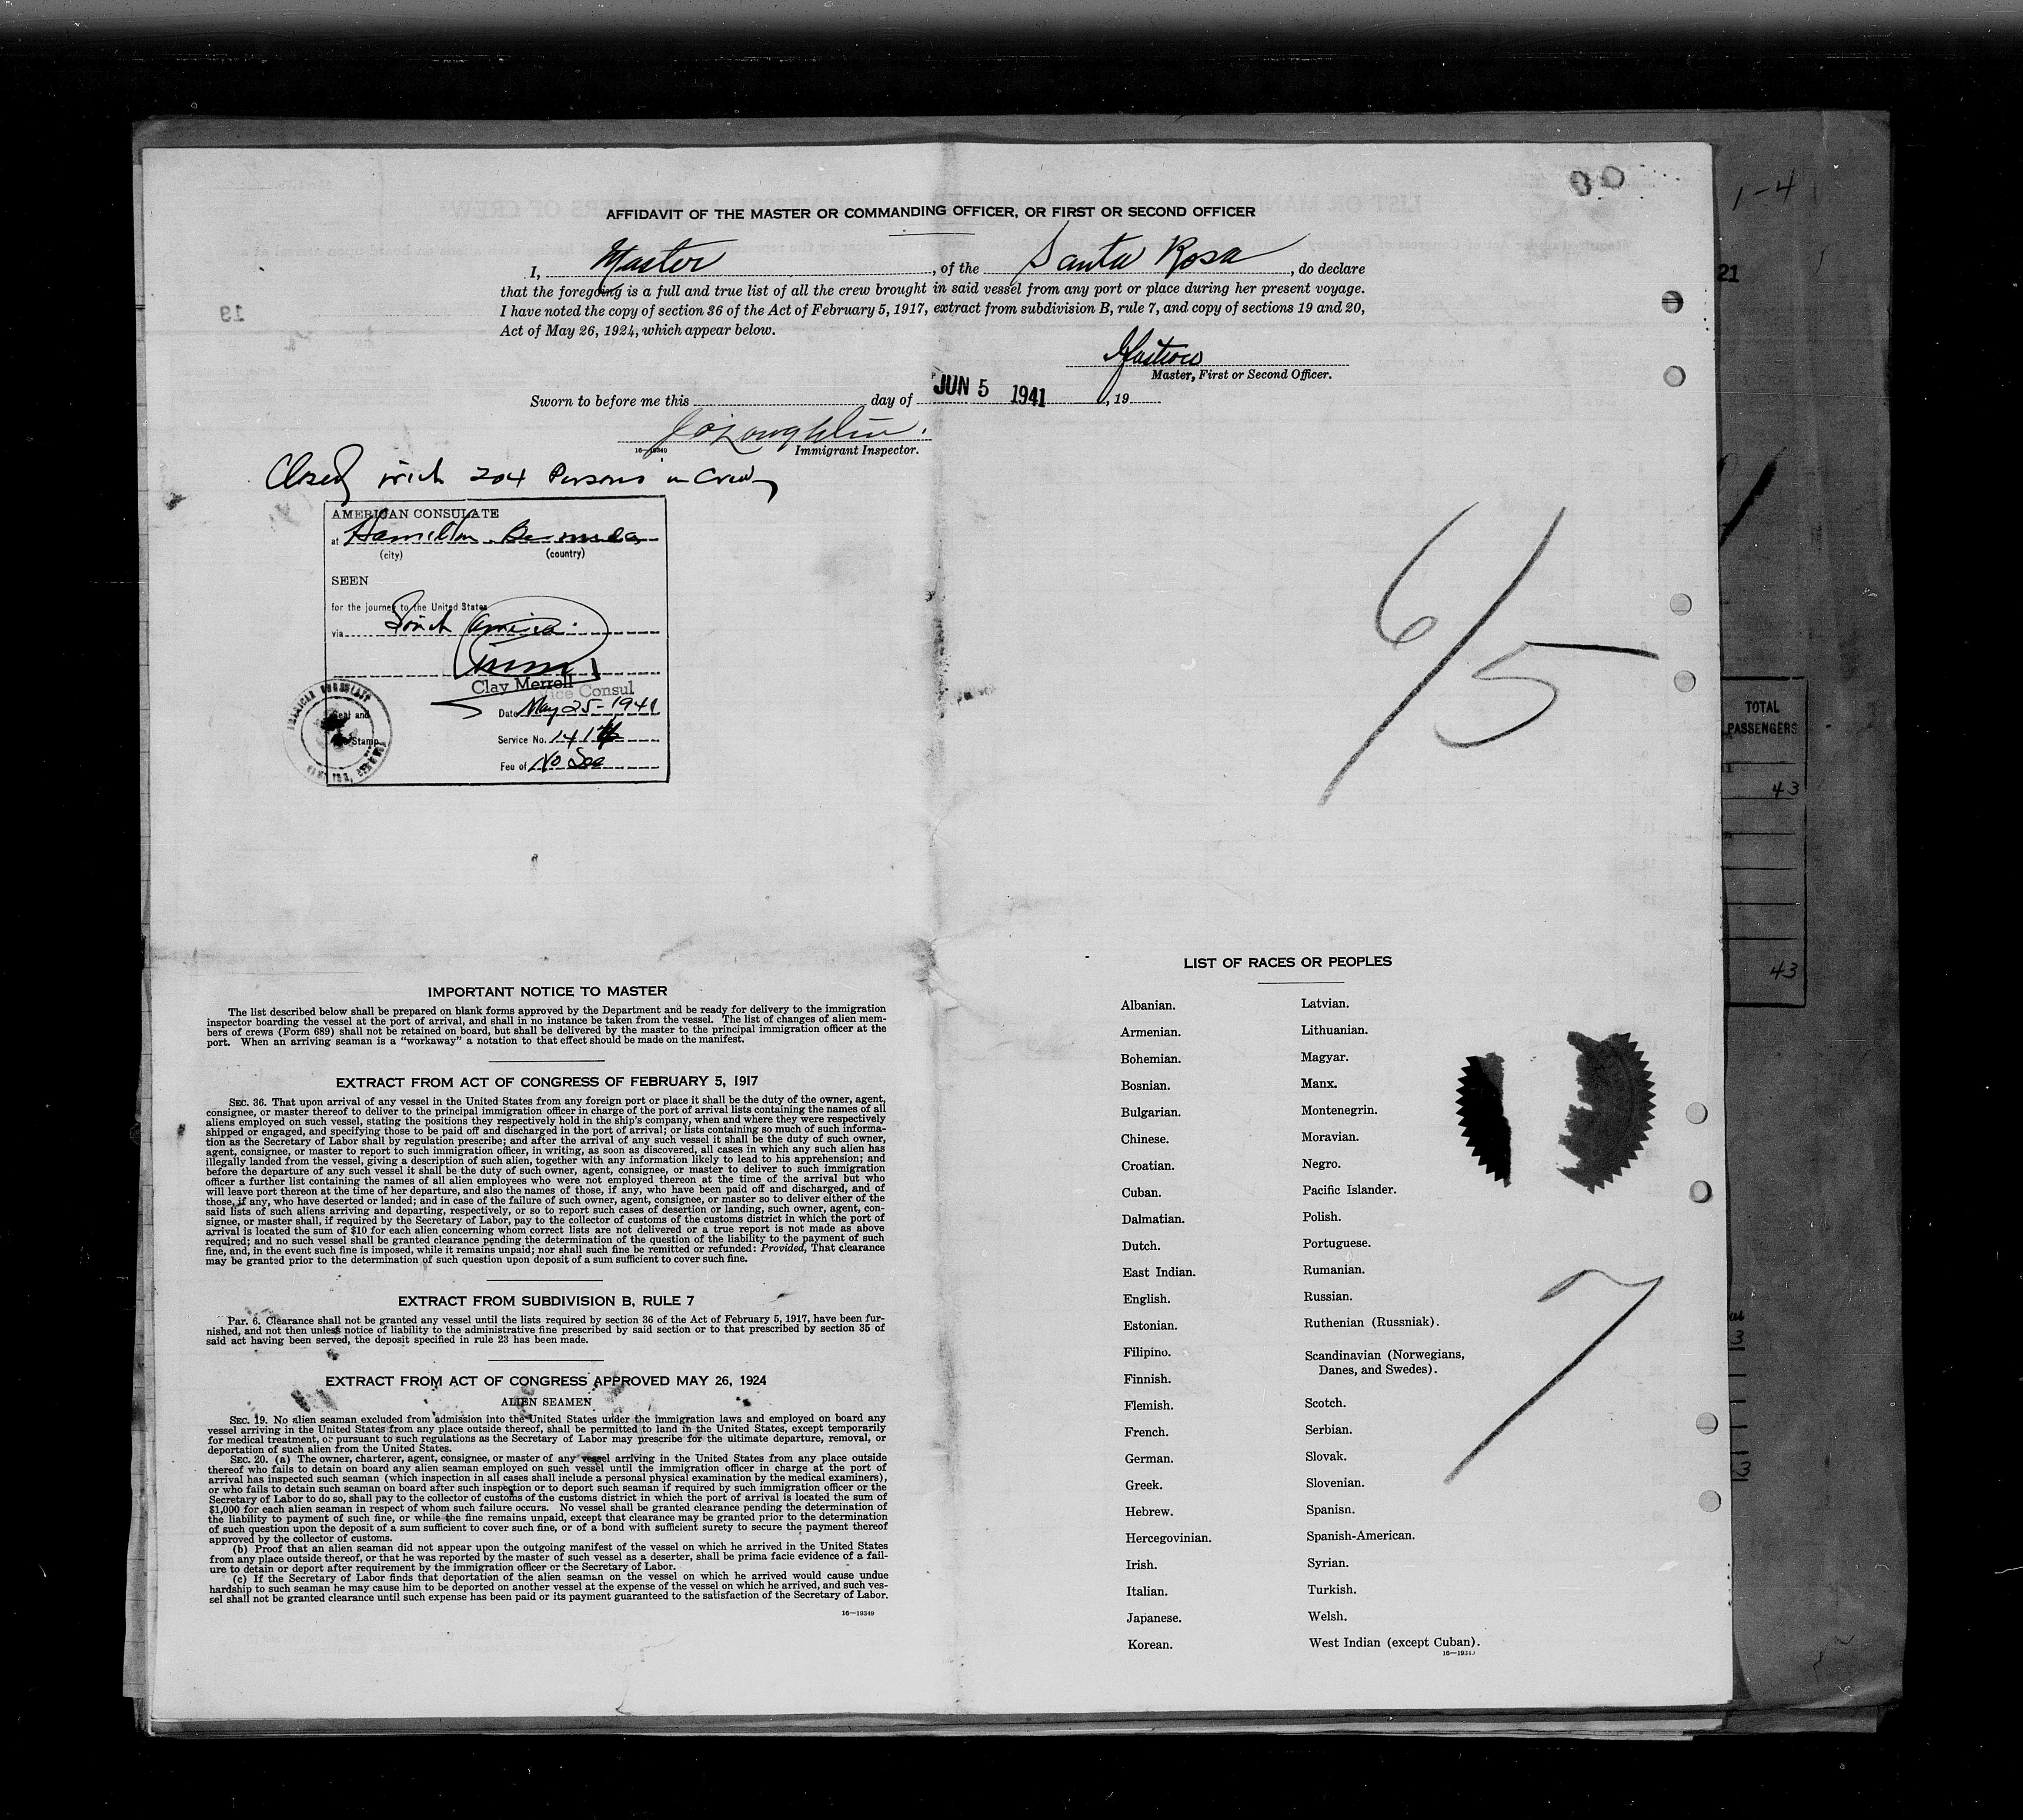 AFFIDAVIT OF THE MASTER OR COMMANDING OFFICER, OR FIRST OR SECOND OFFICER
I, Master, of the Santa Rosa, do declare
that the foregoing is a full and true list of all the crew brought in said vessel from any port or place during her present voyage.
I have noted the copy of section 36 of the Act of February 5, 1917, extract from subdivision B, rule 7, and copy of sections 19 and 20,
Act of May 26, 1924, which appear below.
Master, First or Second Officer.
Sworn to before me this day of JUN 5 1941, 19
16-19349 Immigrant Inspector.
Closed with 204 Persons in Crew
AMERICAN CONSULATE
at Hamilton Bermuda
(city) (country)
SEEN
for the journey to the United States
via
Clay Merrell
Vice Consul
Date May 25-1941
Seal and
Stamp
Service No. 141
Fee of No Fee
6/5
IMPORTANT NOTICE TO MASTER
The list described below shall be prepared on blank forms approved by the Department and be ready for delivery to the immigration
inspector boarding the vessel at the port of arrival, and shall in no instance be taken from the vessel. The list of changes of alien mem-
bers of crews (Form 689) shall not be retained on board, but shall be delivered by the master to the principal immigration officer at the
port. When an arriving seaman is a "workaway" a notation to that effect should be made on the manifest.
EXTRACT FROM ACT OF CONGRESS OF FEBRUARY 5, 1917
SEC. 36. That upon arrival of any vessel in the United States from any foreign port or place it shall be the duty of the owner, agent,
consignee, or master thereof to deliver to the principal immigration officer in charge of the port of arrival lists containing the names of all
aliens employed on such vessel, stating the positions they respectively hold in the ship's company, when and where they were respectively
shipped or engaged, and specifying those to be paid off and discharged in the port of arrival; or lists containing so much of such informa-
tion as the Secretary of Labor shall by regulation prescribe; and after the arrival of any such vessel it shall be the duty of such owner,
agent, consignee, or master to report to such immigration officer, in writing, as soon as discovered, all cases in which any such alien has
illegally landed from the vessel, giving a description of such alien, together with any information likely to lead to his apprehension; and
before the departure of any such vessel it shall be the duty of such owner, agent, consignee, or master to deliver to such immigration
officer a further list containing the names of all alien employees who were not employed thereon at the time of the arrival but who
will leave port thereon at the time of her departure, and also the names of those, if any, who have been paid off and discharged, and of
those, if any, who have deserted or landed; and in case of the failure of such owner, agent, consignee, or master so to deliver either of the
said lists of such aliens arriving and departing, respectively, or so to report such cases of desertion or landing, such owner, agent, con-
signee, or master shall, if required by the Secretary of Labor, pay to the collector of customs of the customs district in which the port of
arrival is located the sum of $10 for each alien concerning whom correct lists are not delivered or a true report is not made as above
required; and no such vessel shall be granted clearance pending the determination of the question of the liability to the payment of such
fine, and, in the event such fine is imposed, while it remains unpaid; nor shall such fine be remitted or refunded: Provided, That clearance
may be granted prior to the determination of such question upon deposit of a sum sufficient to cover such fine.
EXTRACT FROM SUBDIVISION B, RULE 7
Par. 6. Clearance shall not be granted any vessel until the lists required by section 36 of the Act of February 5, 1917, have been fur-
nished, and not then unless notice of liability to the administrative fine prescribed by said section or to that prescribed by section 35 of
said act having been served, the deposit specified in rule 23 has been made.
EXTRACT FROM ACT OF CONGRESS APPROVED MAY 26, 1924
ALIEN SEAMEN
SEC. 19. No alien seaman excluded from admission into the United States under the immigration laws and employed on board any
vessel arriving in the United States from any place outside thereof, shall be permitted to land in the United States, except temporarily
for medical treatment, or pursuant to such regulations as the Secretary of Labor may prescribe for the ultimate departure, removal, or
deportation of such alien from the United States.
SEC. 20. (a) The owner, charterer, agent, consignee, or master of any vessel arriving in the United States from any place outside
thereof who fails to detain on board any alien seaman employed on such vessel until the immigration officer in charge at the port of
arrival has inspected such seaman (which inspection in all cases shall include a personal physical examination by the medical examiners),
or who fails to detain such seaman on board after such inspection or to deport such seaman if required by such immigration officer or the
Secretary of Labor to do so, shall pay to the collector of customs of the customs district in which the port of arrival is located the sum of
$1,000 for each alien seaman in respect of whom such failure occurs. No vessel shall be granted clearance pending the determination of
the liability to payment of such fine, or while the fine remains unpaid, except that clearance may be granted prior to the determination
of such question upon the deposit of a sum sufficient to cover such fine, or of a bond with sufficient surety to secure the payment thereof
approved by the collector of customs.
(b) Proof that an alien seaman did not appear upon the outgoing manifest of the vessel on which he arrived in the United States
from any place outside thereof, or that he was reported by the master of such vessel as a deserter, shall be prima facie evidence of a fail-
ure to detain or deport after requirement by the immigration officer or the Secretary of Labor.
(c) If the Secretary of Labor finds that deportation of the alien seaman on the vessel on which he arrived would cause undue
hardship to such seaman he may cause him to be deported on another vessel at the expense of the vessel on which he arrived, and such ves-
sel shall not be granted clearance until such expense has been paid or its payment guaranteed to the satisfaction of the Secretary of Labor.
16-19349
LIST OF RACES OR PEOPLES
Albanian.
Armenian.
Bohemian.
Bosnian.
Bulgarian.
Chinese.
Croatian.
Cuban.
Dalmatian.
Dutch.
East Indian.
English.
Estonian.
Filipino.
Finnish.
Flemish.
French.
German.
Greek.
Hebrew.
Hercegovinian.
Irish.
Italian.
Japanese.
Korean.
Latvian.
Lithuanian.
Magyar.
Manx.
Montenegrin.
Moravian.
Negro.
Pacific Islander.
Polish.
Portuguese.
Rumanian.
Russian.
Ruthenian (Russniak).
Scandinavian (Norwegians,
Danes, and Swedes).
Scotch.
Serbian.
Slovak.
Slovenian.
Spanish.
Spanish-American.
Syrian.
Turkish.
Welsh.
West Indian (except Cuban).
16-19349
7
1-4
21
TOTAL
PASSENGERS
43
43
3
3